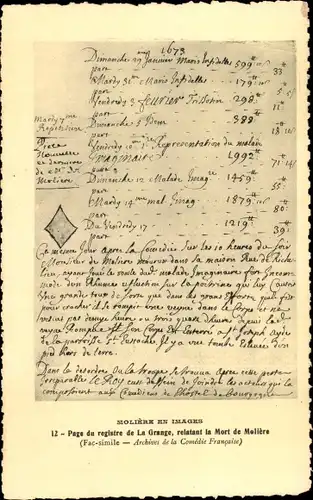 1673
Dimanche 29 Janvier Maris Infidelles 599
part 33
Mardy 31 Maris Infidelles 179
part 5 5
Vendredy 3 feuvrier Tritotin 298
part 11
Mardy 7me
Dimanche 5 Idem 388
part 18
Piece
Nouvelle
et derniere
de Mr De
Moliere
Vendredy 10 1ere Representation du malade
Imaginaire 1992
part
Dimanche 12 Malade Imag 1459
part 55
Mardy 14me mal Imag 1879
part 80
Du Vendredy 17 1219
part 39
Ce mesme Jour apres la Comedie sur les 10 heures du soir
Monsieur de Moliere mourust dans sa maison Rue de Riche-
lieu, ayant Joué le roole dudt malade Imaginaire fort Incom-
modé d'un Rhume et fluction sur la poitrine qui luy Causoit
Une grande toux de sorte que dans les grans Effortz qu'il fist
pour cracher il se rompit une veyne dans le Corps et ne
vescut pas demye heure ou trois quartz d'heure depuis lad
veyne Rompue Et son Corps est Enterré a St Joseph ayde
de la parroisse St Eustache Il y a une tombe Eslevée d'un
pied hors de terre.
Dans le desordre Ou la troupe se trouva apres cette perte
Irreparable Le Roy eust dessein de Joindre les acteurs qui la
composoient aux Comediens de l'hostel de Bourgogne
MOLIÈRE EN IMAGES
12 - Page du registre de La Grange, relatant la Mort de Molière
(Fac-simile — Archives de la Comédie Française)